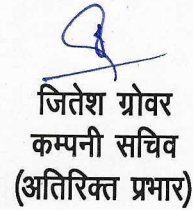 जितेश ग्रोवर
कम्पनी सचिव
(अतिरिक्त प्रभार)